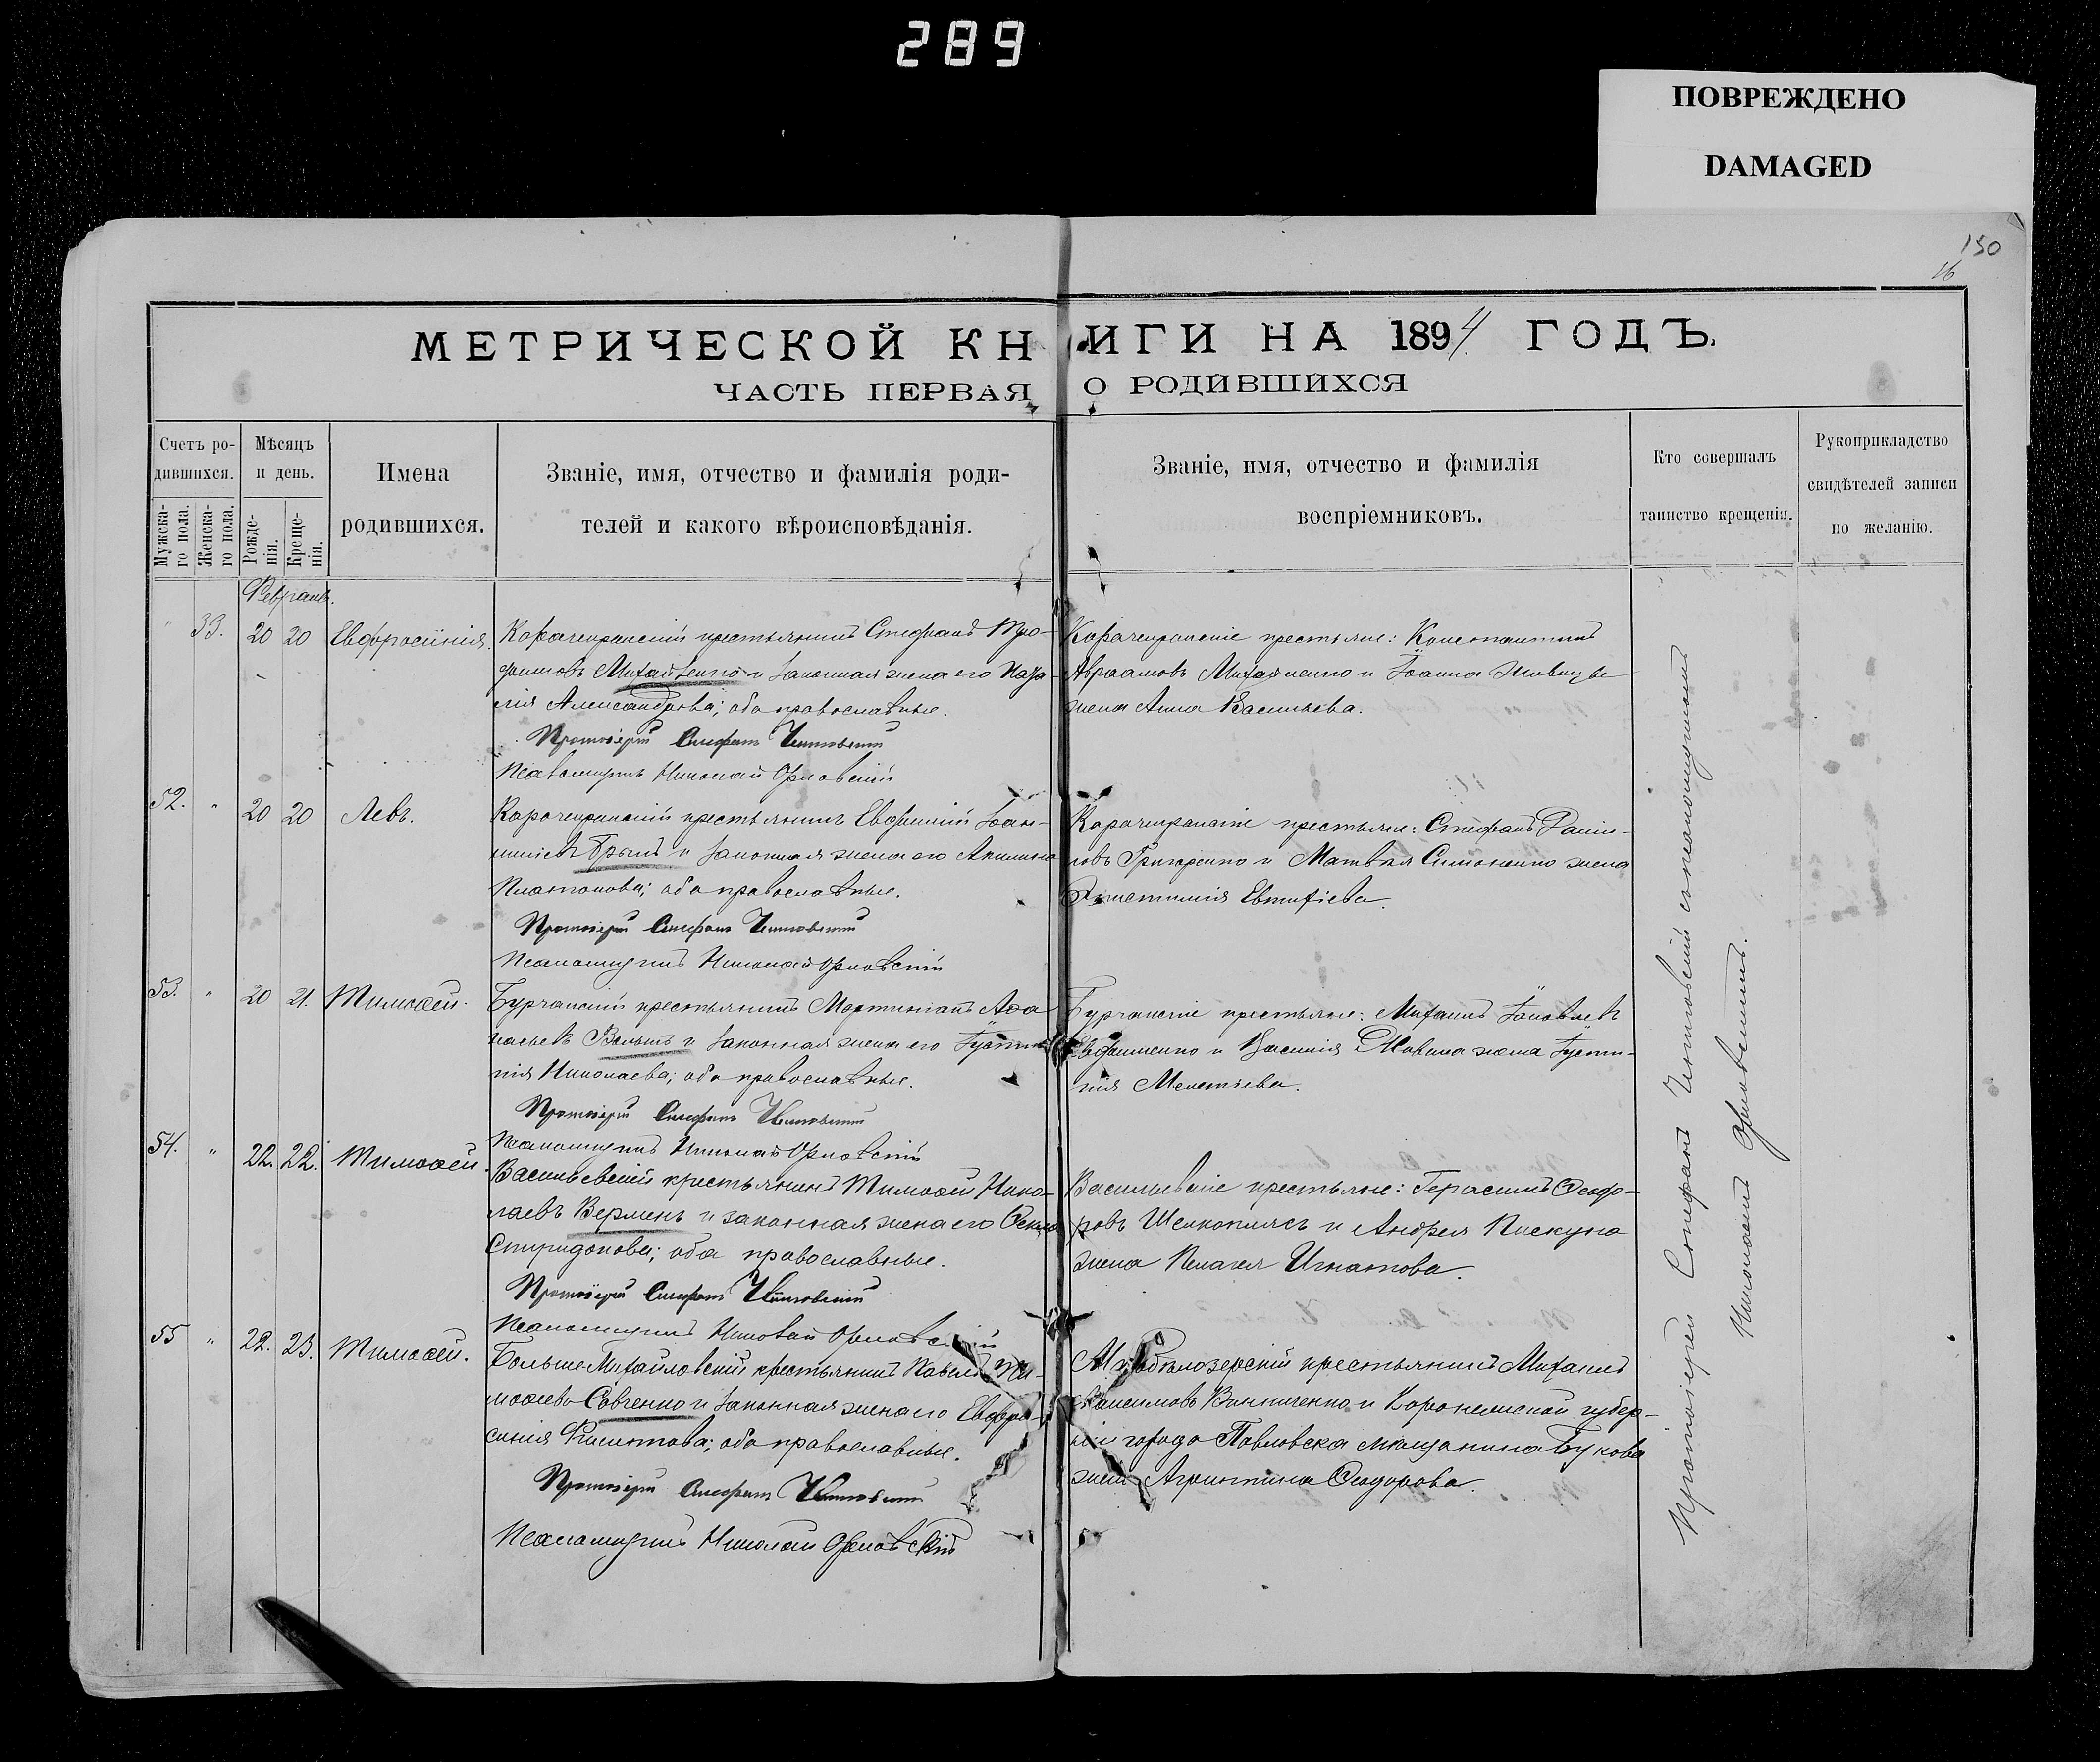 289
ПОВРЕЖДЕНО
DAMAGED
150
16
МЕТРИЧЕСКОЙ КНИГИ НА 1894 ГОДЪ.
ЧАСТЬ ПЕРВАЯ О РОДИВШИХСЯ
Счетъ ро-
дившихся.
Мужска-
го пола.
Женска-
го пола.
Мѣсяцъ
и день.
Рожде-
нія.
Креще-
нія.
Имена
родившихся.
Званіе, имя, отчество и фамилія роди-
телей и какого вѣроисповѣданія.
Званіе, имя, отчество и фамилія
воспріемниковъ.
Кто совершалъ
таинство крещенія.
Рукоприкладство
свидѣтелей записи
по желанію.
Февраль.
" 33. 20 20 Евфросинія.
крестьянинъ Стефанъ Тро-
фимовъ Михайленко и законная жена его
Александрова; оба православные.
Протоіерей Стефанъ
Псаломщикъ Николай Орловскій
крестьяне: Константинъ
Авраамовъ Михайленко и Іоанна
жена Анна Васильева.
52. " 20 20 Левъ.
крестьянинъ Евфимій Іоан-
и законная жена его Акилина
Платонова; оба православные.
Протоіерей Стефанъ
Псаломщикъ Николай Орловскій
крестьяне: Стефанъ Дані-
ловъ Григоренко и Матвѣя Симоненко жена
Евтихіева.
53. " 20 21. Тимоѳей.
Бурчанскій крестьянинъ Мартиніанъ Аѳа
насьевъ и законная жена его Іусти
нія Николаева; оба православные.
Протоіерей Стефанъ
Псаломщикъ Николай Орловскій
Бурчанскіе крестьяне: Михаилъ Іаковлевъ
Евфименко и Василія жена Іусти-
нія Мелетіева.
54. " 22. 22. Тимоѳей.
Васильевскій крестьянинъ Тимоѳей Нико-
лаевъ Верменъ и законная жена его Ѳекла
Спиридонова; оба православные.
Протоіерей Стефанъ
Псаломщикъ Николай Орловскій
Васильевскіе крестьяне: Герасимъ Ѳеодо-
ровъ и Андрея Пискуна
жена Пелагея Игнатова.
55 " 22. 23. Тимоѳей.
Больше-Михайловскій крестьянинъ Павелъ Ти-
моѳеевъ Савченко и законная жена его Евфро-
синія оба православные.
Протоіерей Стефанъ
Псаломщикъ Николай Орловскій
крестьянинъ Михаилъ
Винниченко и Воронежской губер-
ніи города Павловска мѣщанина Букова
жена Агриппина Ѳеодорова.
Протоіерей Стефанъ съ псаломщикомъ
Николаемъ Орловскимъ.